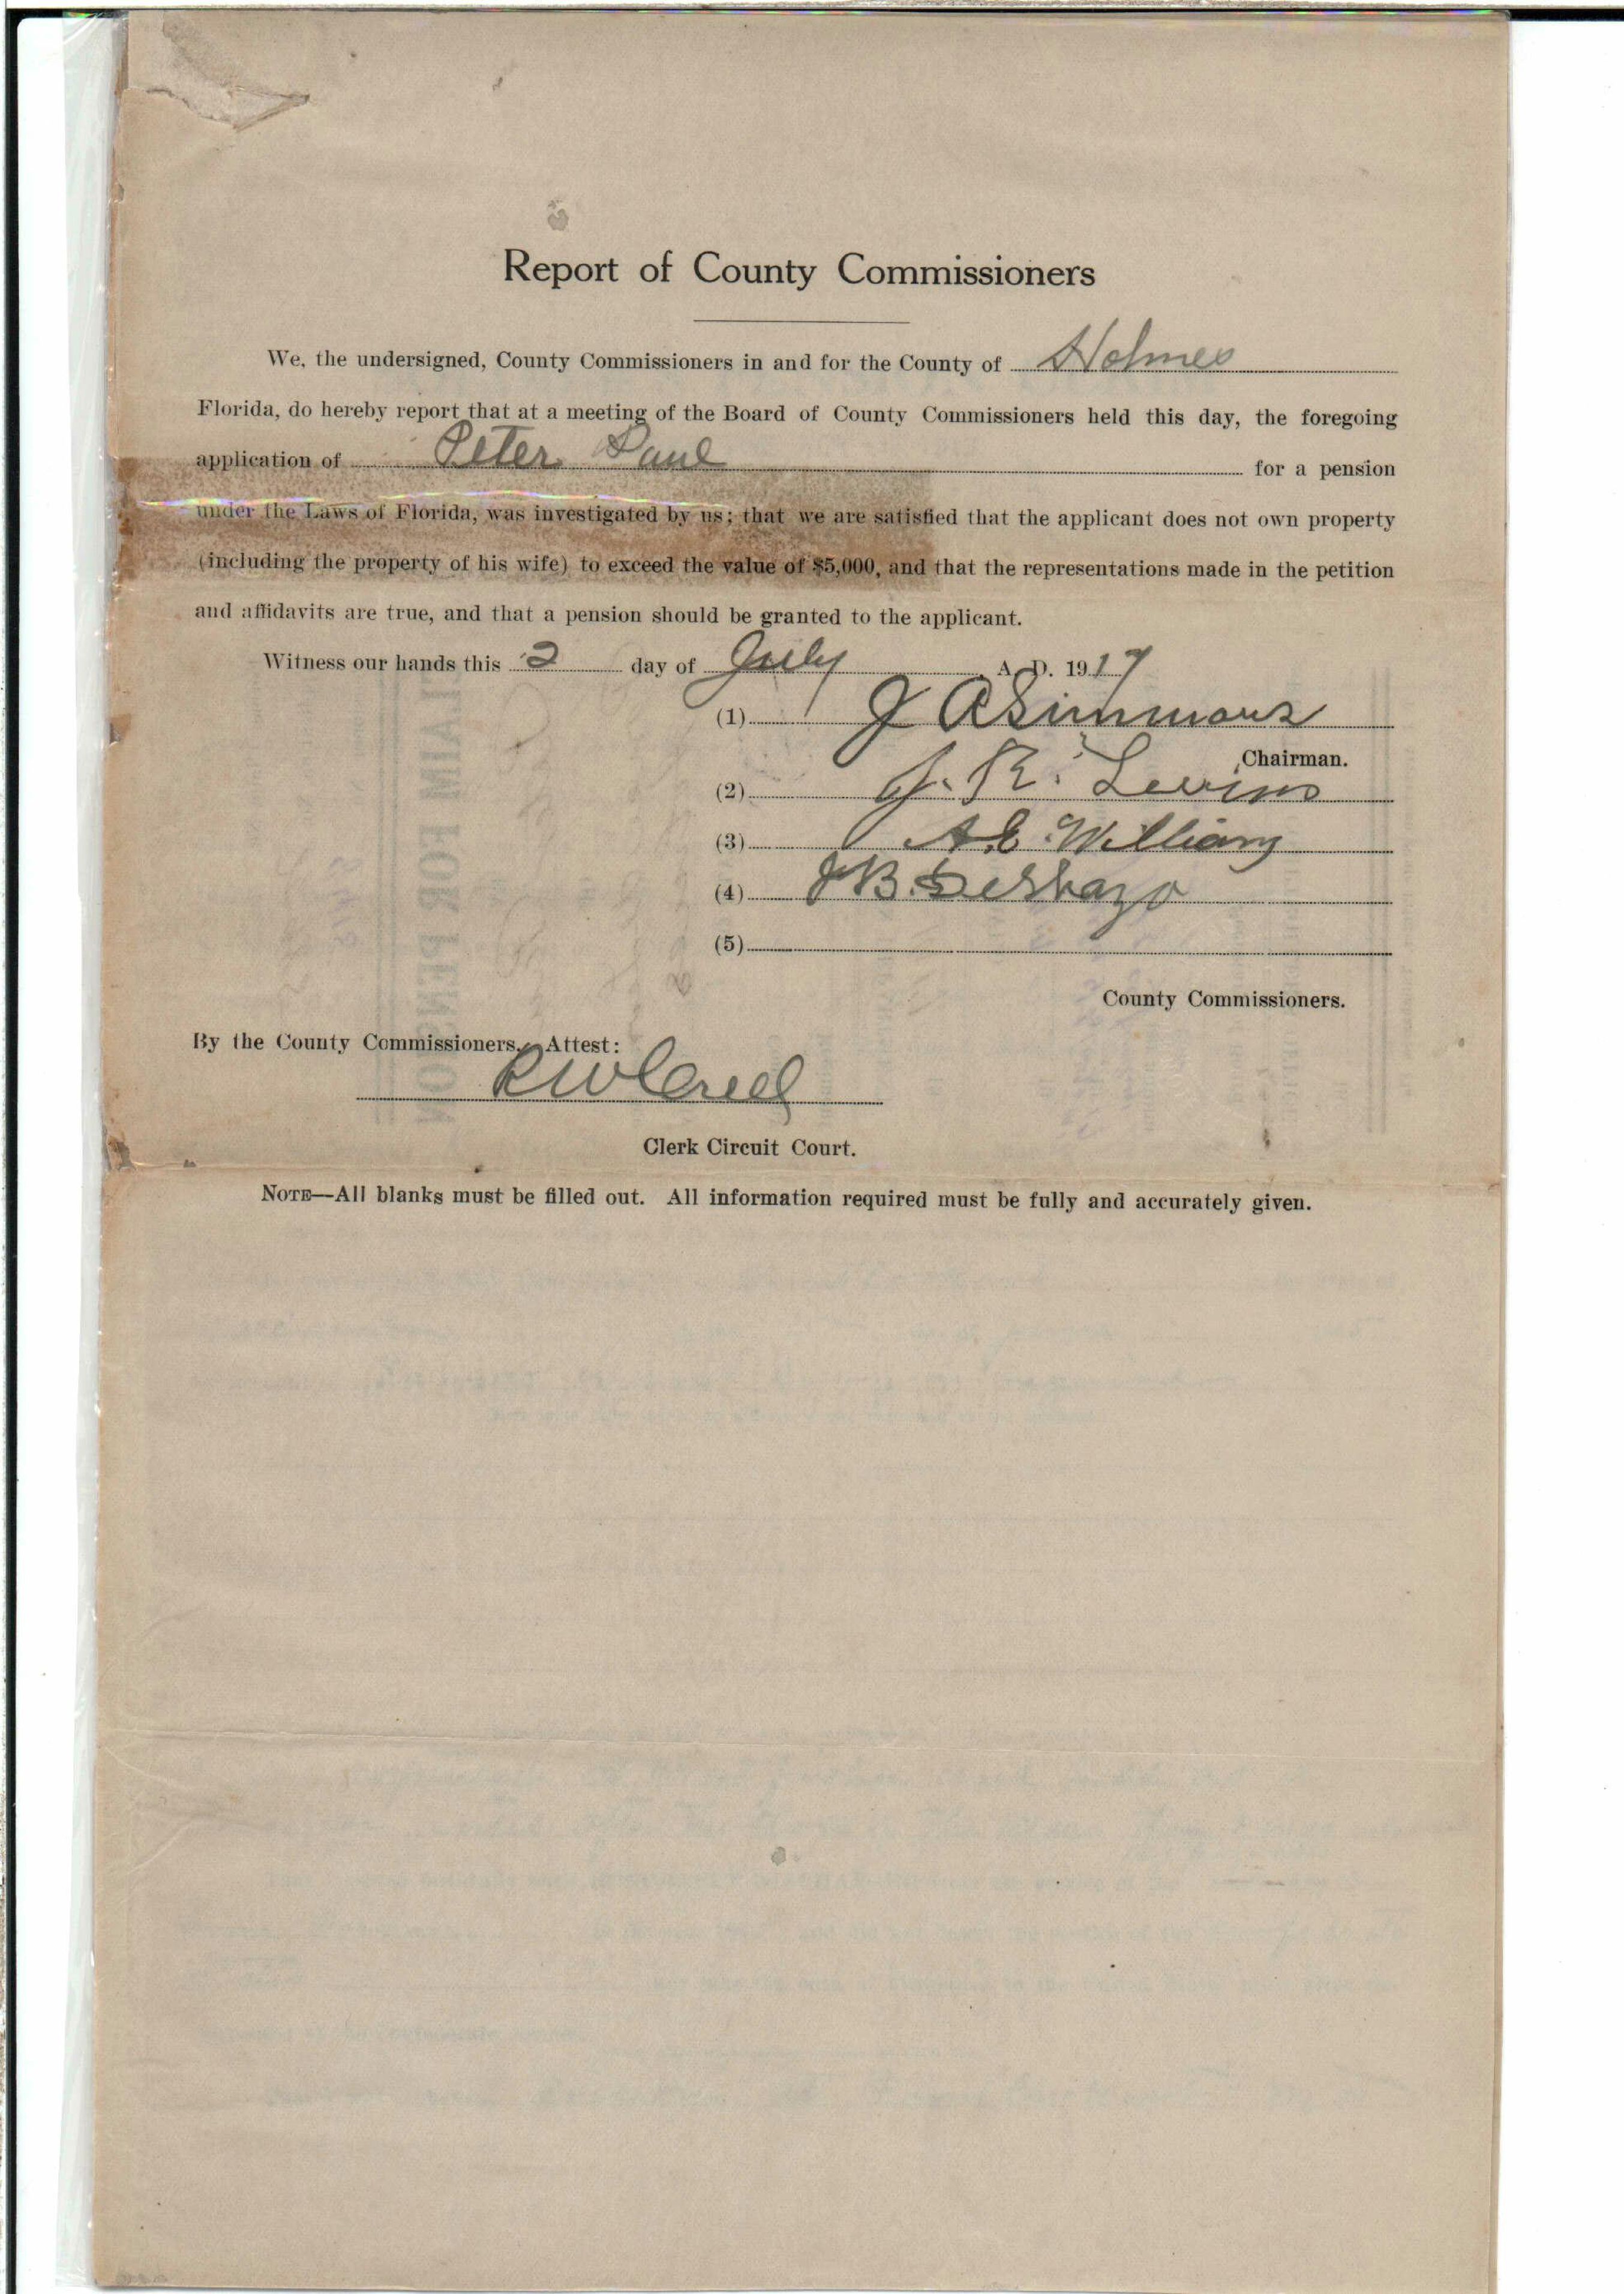 Report of County Commissioners
We, the undersigned, County Commissioners in and for the County of Holmes
Florida, do hereby report that at a meeting of the Board of County Commissioners held this day, the foregoing
application of Peter Paul for a pension
under the Laws of Florida, was investigated by us; that we are satisfied that the applicant does not own property
(including the property of his wife) to exceed the value of $5,000, and that the representations made in the petition
and affidavits are true, and that a pension should be granted to the applicant.
Witness our hands this 2 day of July A. D. 1917
(1) J A Simmons
Chairman.
(2) J. R. Levins
(3) A E Williams
(4) J B. DeShazo
(5)
County Commissioners.
By the County Commissioners. Attest:
R W Creel
Clerk Circuit Court.
NOTE—All blanks must be filled out. All information required must be fully and accurately given.